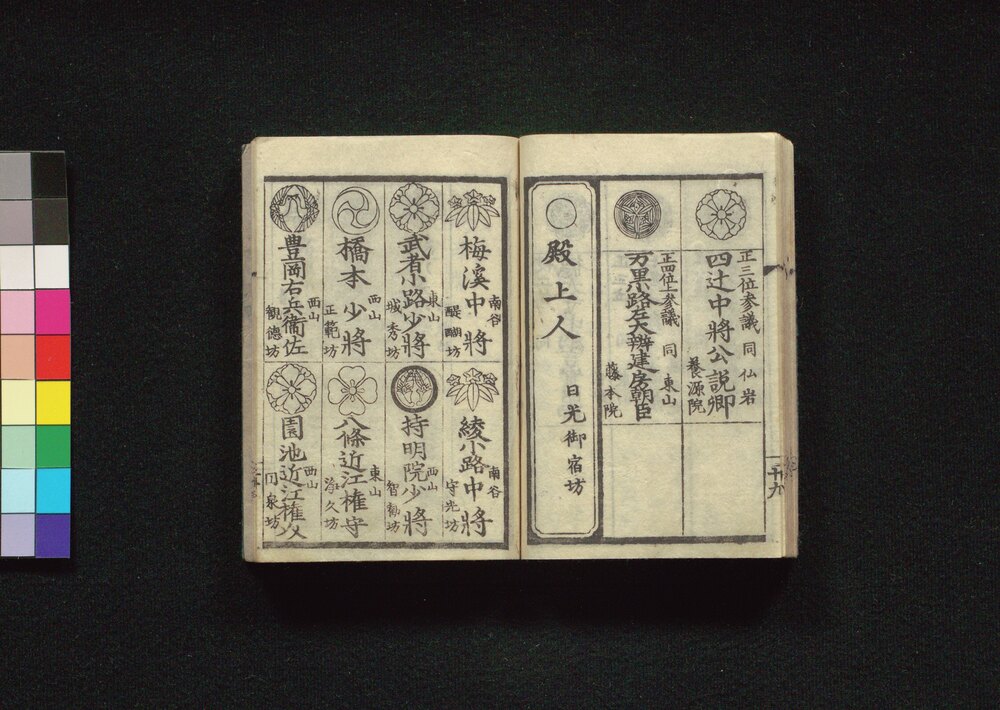 正三位参議 同 仏岩
四辻中将公説卿
養源院
正四位上参議 同 東山
万里小路左大辨建房朝臣
藤本院
殿上人
日光御宿坊
南谷
梅溪中将
醍醐坊
東山
武者小路少将
城秀坊
西山
橋本少将
正範坊
西山
豊岡右兵衛佐
観徳坊
南谷
綾小路中将
守光坊
西山
持明院少将
智観坊
東山
八條近江権守
浄久坊
西山
園池近江権介